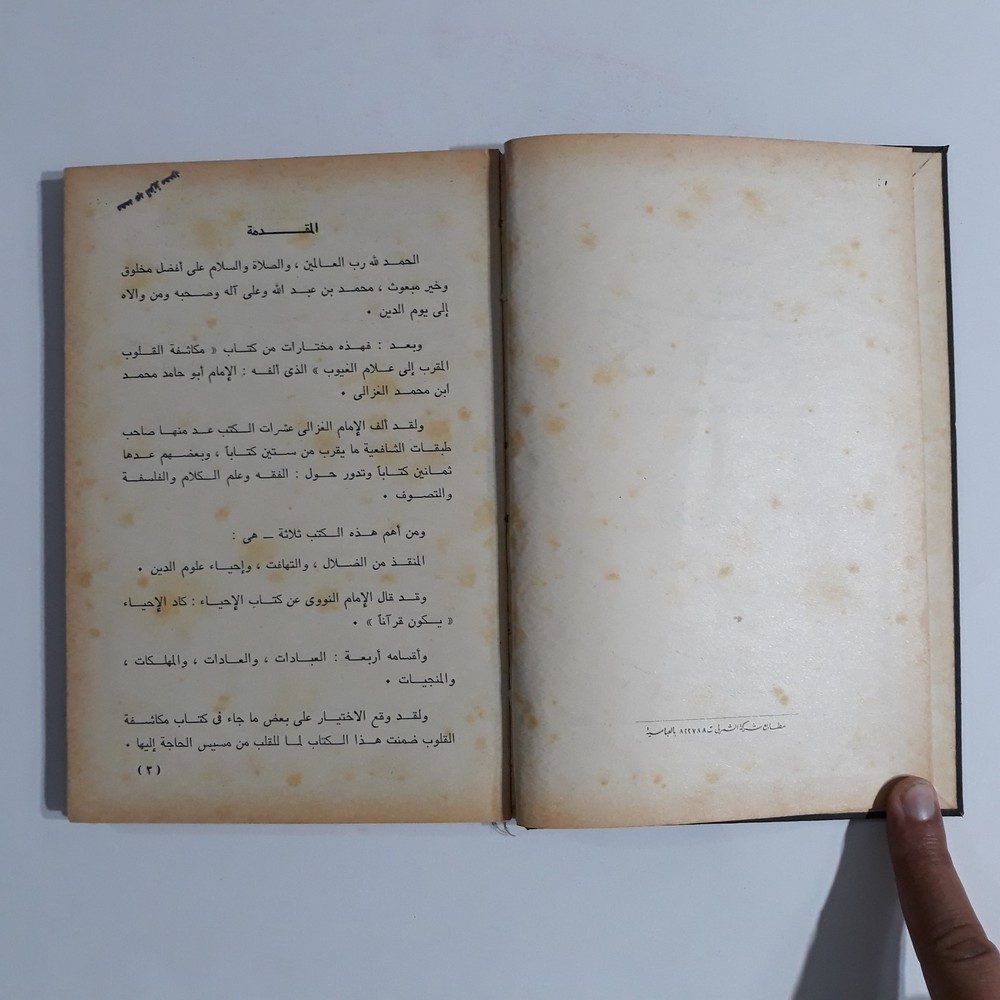 مطابع شركة الشمرلى ت ٨٢٢٧٨٨ بالعباسية
محمد عبد العزيز محمود
المقـــــدمة
الحمـد لله رب العـالمين ، والصلاة والسلام على أفضل مخلوق
وخير مبعوث ، محمـد بن عبـد الله وعلى آله وصـحبه ومن والاه
إلى يوم الدين .
وبعـد : فهـذه مختـارات من كتـاب « مكاشفة القـلوب
المقرب إلى عـلام الغيوب » الذى ألفـه : الإمام أبو حامد محمـد
ابن محمـد الغزالى .
ولقـد ألف الإمام الغزالى عشرات الـكتب عـد منهـا صاحب
طبقـات الشافعية ما يقرب من سـتين كتـاباً ، وبعضـهم عـدها
ثمـانين كتـاباً وتدور حـول : الفقـه وعلم الـكلام والفلسفـة
والتصـوف .
ومن أهم هـذه الـكتب ثلاثة ــ هى :
المنقـذ من الضـلال ، والتهافت ، وإحيـاء علوم الدين .
وقـد قال الإمام النووى عن كتـاب الإحيـاء : كاد الإحيـاء
« يـكون قرآناً » .
وأقسامه أربعـة : العبـادات ، والعـادات ، والمهلـكات ،
والمنجيـات .
ولقـد وقع الاختيـار على بعض ما جاء فى كتـاب مكاشـفة
القلوب ضمنت هـذا الـكتاب لمـا للقلب من مسيس الحاجة إليها .
( ٣ )